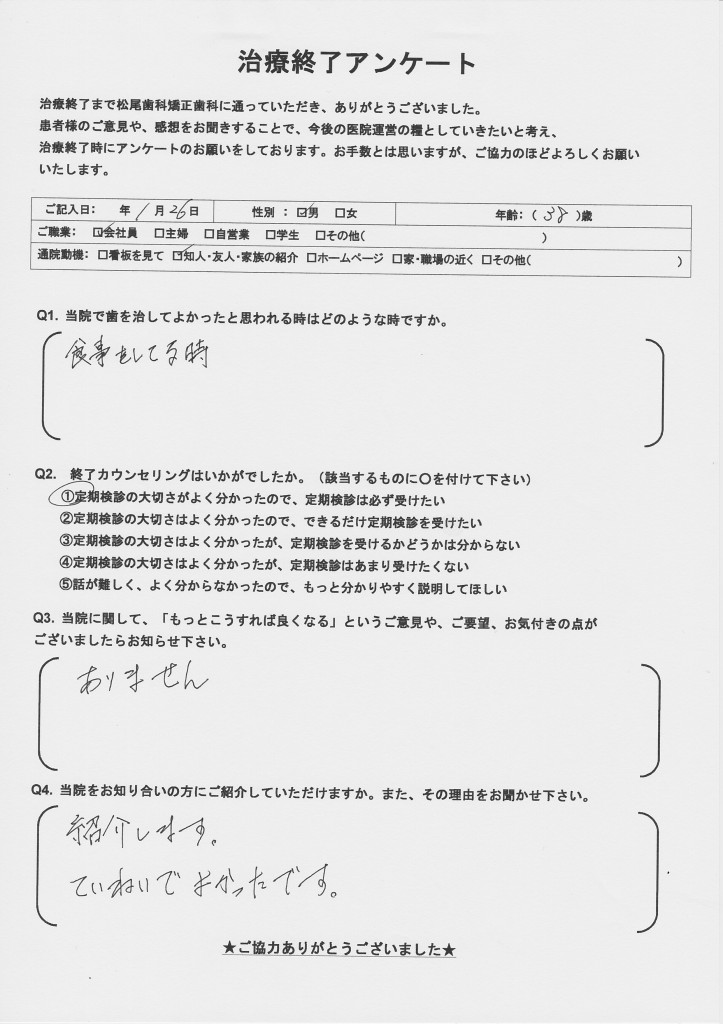 治療終了アンケート
治療終了まで松尾歯科矯正歯科に通っていただき、ありがとうございました。
患者様のご意見や、感想をお聞きすることで、今後の医院運営の糧としていきたいと考え、
治療終了時にアンケートのお願いをしております。お手数とは思いますが、ご協力のほどよろしくお願い
いたします。
ご記入日： 年 1 月 26 日 性別 ： ☑男 □女 年齢：（ 38 ）歳
ご職業： ☑会社員 □主婦 □自営業 □学生 □その他（ ）
通院動機：□看板を見て ☑知人・友人・家族の紹介 □ホームページ □家・職場の近く □その他（ ）
Q1. 当院で歯を治してよかったと思われる時はどのような時ですか。
食事をしてる時
Q2. 終了カウンセリングはいかがでしたか。（該当するものに〇を付けて下さい）
①定期検診の大切さがよく分かったので、定期検診は必ず受けたい
②定期検診の大切さはよく分かったので、できるだけ定期検診を受けたい
③定期検診の大切さはよく分かったが、定期検診を受けるかどうかは分からない
④定期検診の大切さはよく分かったが、定期検診はあまり受けたくない
⑤話が難しく、よく分からなかったので、もっと分かりやすく説明してほしい
Q3. 当院に関して、「もっとこうすれば良くなる」というご意見や、ご要望、お気付きの点が
ございましたらお知らせ下さい。
ありません
Q4. 当院をお知り合いの方にご紹介していただけますか。また、その理由をお聞かせ下さい。
紹介します。
ていねいでよかったです。
★ご協力ありがとうございました★